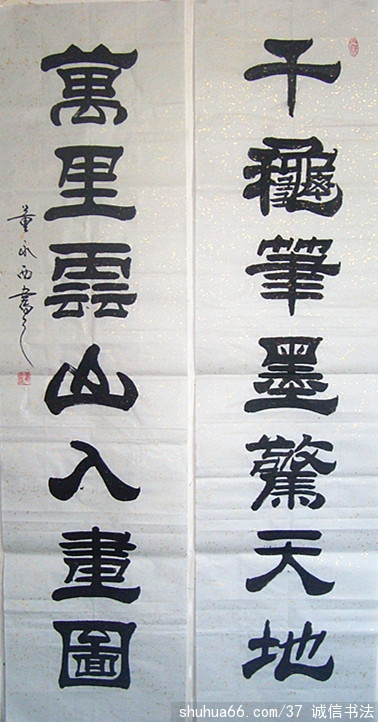 千龝筆墨驚天地
萬里雲山入畫圖
董永西書
shuhua66.com/37 诚信书法